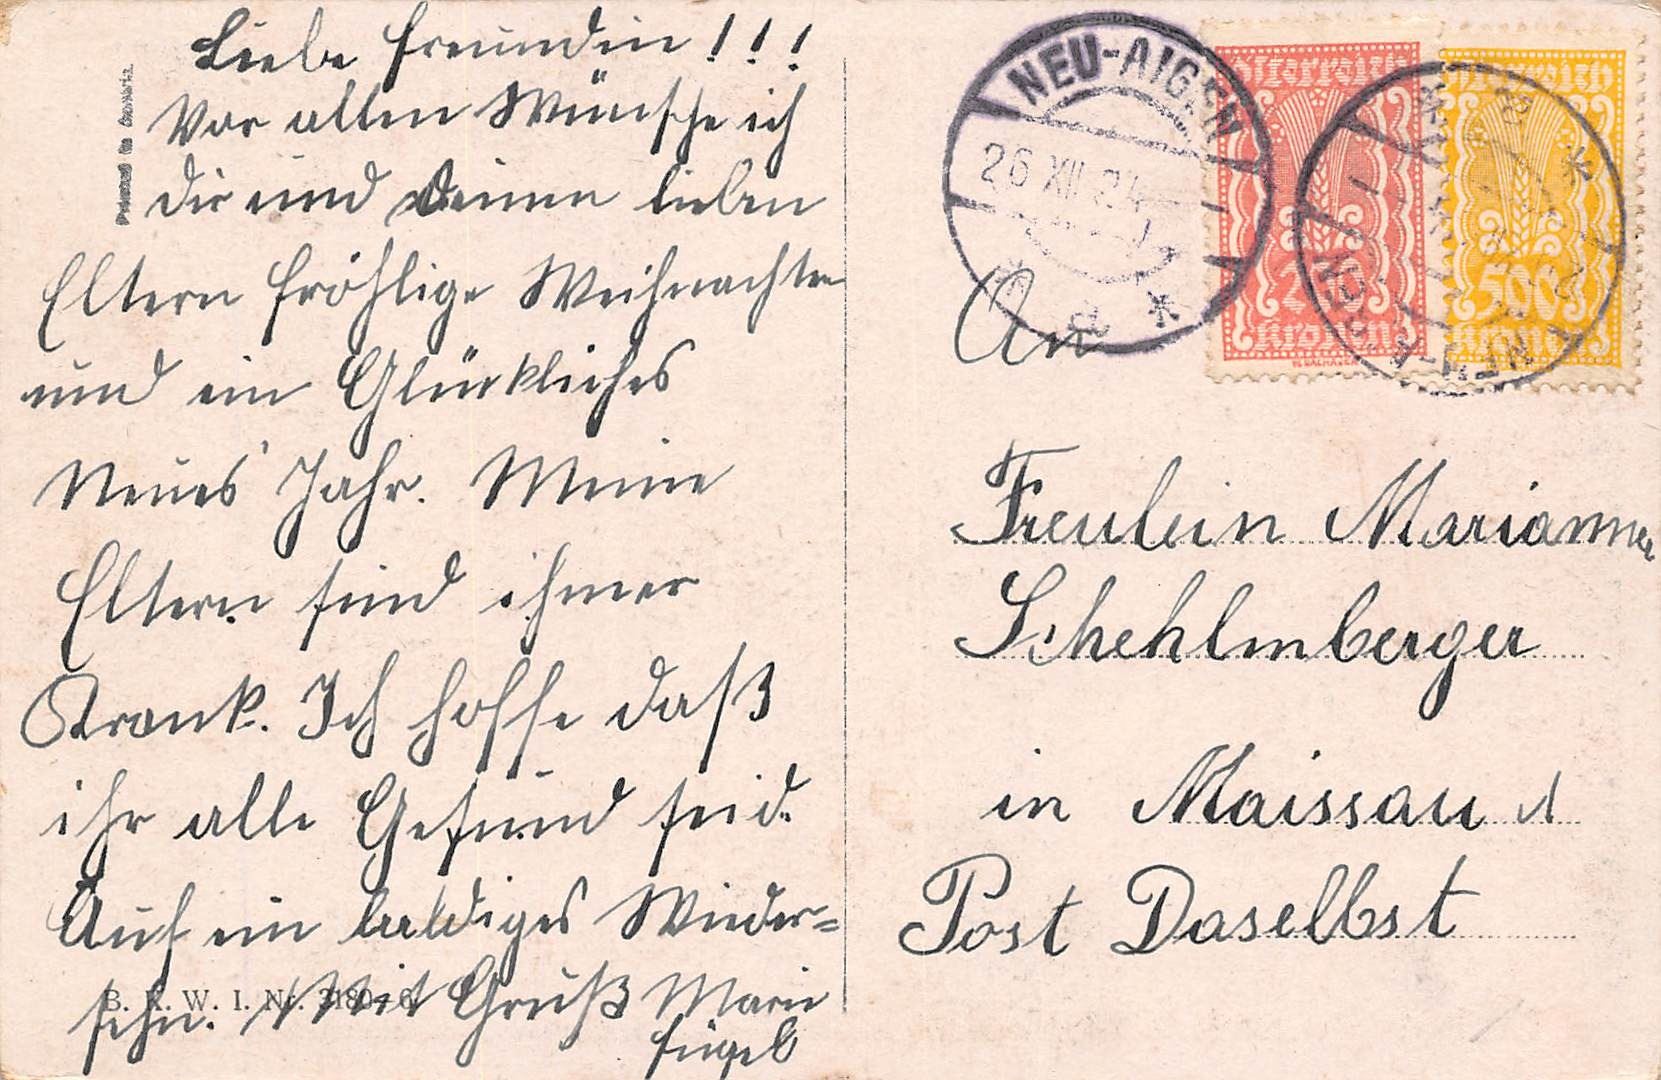 Liebe Freundin!!!
Vor allen Wünsche ich
dir und Deinen lieben
Eltern fröhlige Weihnachten
und ein Glückliches
Neues Jahr. Meine
Eltern sind ihmer
Krank. Ich hoffe daß
ihr alle Gesund seid.
Auf ein baldiges Wieder=
sehn. Mit Gruß Marie
Printed in Austria
B. K. W. I. Nr.
NEU-AIGEN
26 XII 24
a
Österreich
Kronen
Österreich
500
Kronen
NEU-AIGEN
a
An
Freulein Marianne
Schehlmberger
in Maissau
Post Daselbst